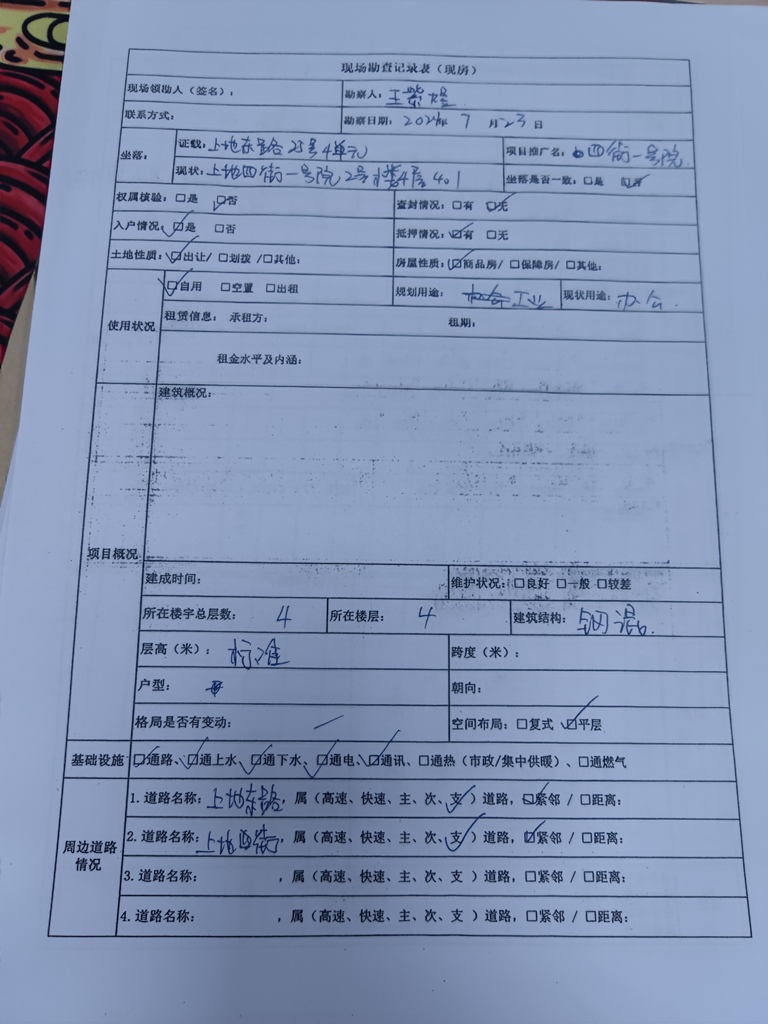 现场勘查记录表（现房）
现场领勘人（签名）： 勘察人：王紫煜
联系方式： 勘察日期：2024年 7 月 23 日
坐落： 证载：上地东路25号4单元 项目推广名：四街一号院
现状：上地四街一号院2号楼4层401 坐落是否一致：□是 ☑否
权属核验：□是 ☑否 查封情况：□有 ☑无
入户情况：☑是 □否 抵押情况：☑有 □无
土地性质：☑出让/ □划拨 /□其他： 房屋性质：☑商品房/ □保障房/ □其他：
使用状况 ☑自用 □空置 □出租 规划用途：工业 现状用途：办公
租赁信息： 承租方： 租期：
租金水平及内涵：
项目概况 建筑概况：
建成时间： 维护状况：□良好 □一般 □较差
所在楼宇总层数： 4 所在楼层： 4 建筑结构：钢混
层高（米）：标准 跨度（米）：
户型： 朝向：
格局是否有变动： / 空间布局：□复式 ☑平层
基础设施 ☑通路、☑通上水、☑通下水、☑通电、☑通讯、□通热（市政/集中供暖）、□通燃气
周边道路情况 1.道路名称：上地东路，属（高速、快速、主、次、支✓）道路，☑紧邻 / □距离：
2.道路名称：上地四街，属（高速、快速、主、次、支✓）道路，☑紧邻 / □距离：
3.道路名称： ，属（高速、快速、主、次、支 ）道路，□紧邻 / □距离：
4.道路名称： ，属（高速、快速、主、次、支 ）道路，□紧邻 / □距离：